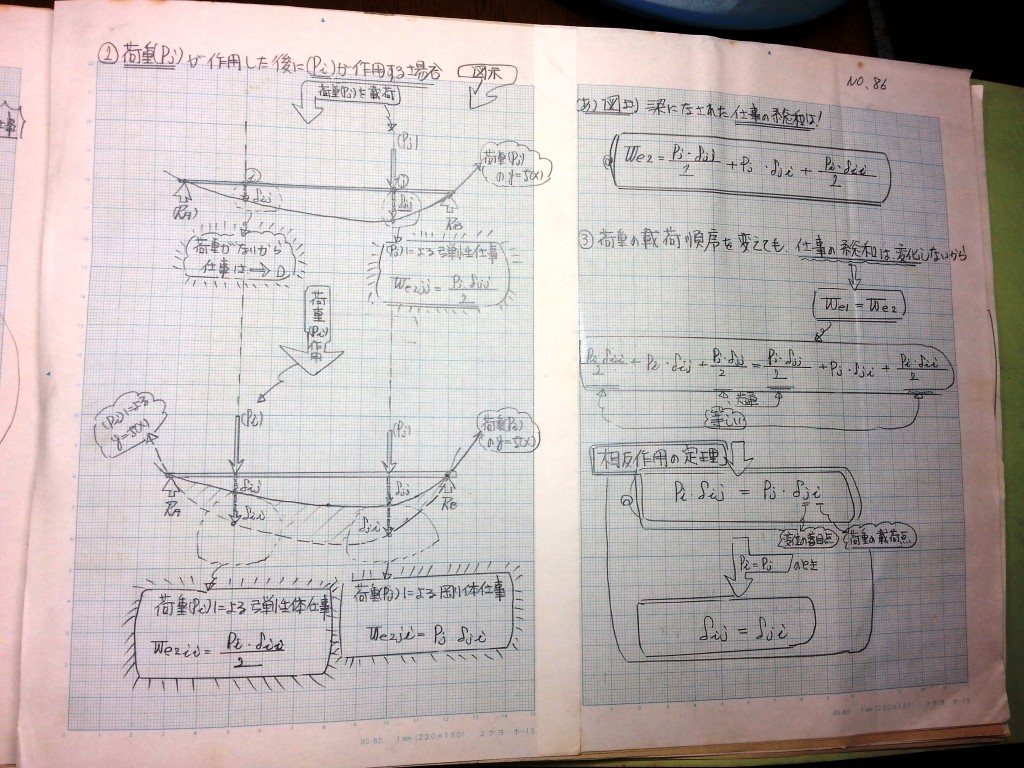 ② 荷重(Pj)が作用した後に(Pi)が作用する場合
図示
荷重(Pj)を載荷
(Pj)
荷重(Pj)
の y=f(x)
② ①
δij δjj
RA RB
荷重がないから
仕事は⇒ 0
(Pj)による弾性仕事
We2jj = Pj・δjj / 2
荷重(Pi)作用
(Pi)による
y=f(x)
(Pi) (Pj)
荷重(Pj)
の y=f(x)
δij δjj
RA RB
δii δji
荷重(Pi)による弾性体仕事
We2ii = Pi・δii / 2
荷重(Pj)による剛体仕事
We2ji = Pj δji
NO. 86
(あ) 図より 梁になされた仕事の総和は!
We2 = Pj・δjj / 2 + Pj・δji + Pi・δii / 2
③ 荷重の載荷順序を変えても、仕事の総和は変化しないから
We1 = We2
Pi・δii / 2 + Pi・δij + Pj・δjj / 2 = Pj・δjj / 2 + Pj・δji + Pi・δii / 2
等しい
相反作用の定理
Pi・δij = Pj・δji
荷重の載荷点
Pi = Pj のとき
δij = δji
JIS-B5 1mm (220×150) コクヨ ホ-15
JIS-B5 1mm (220×150) コクヨ ホ-15